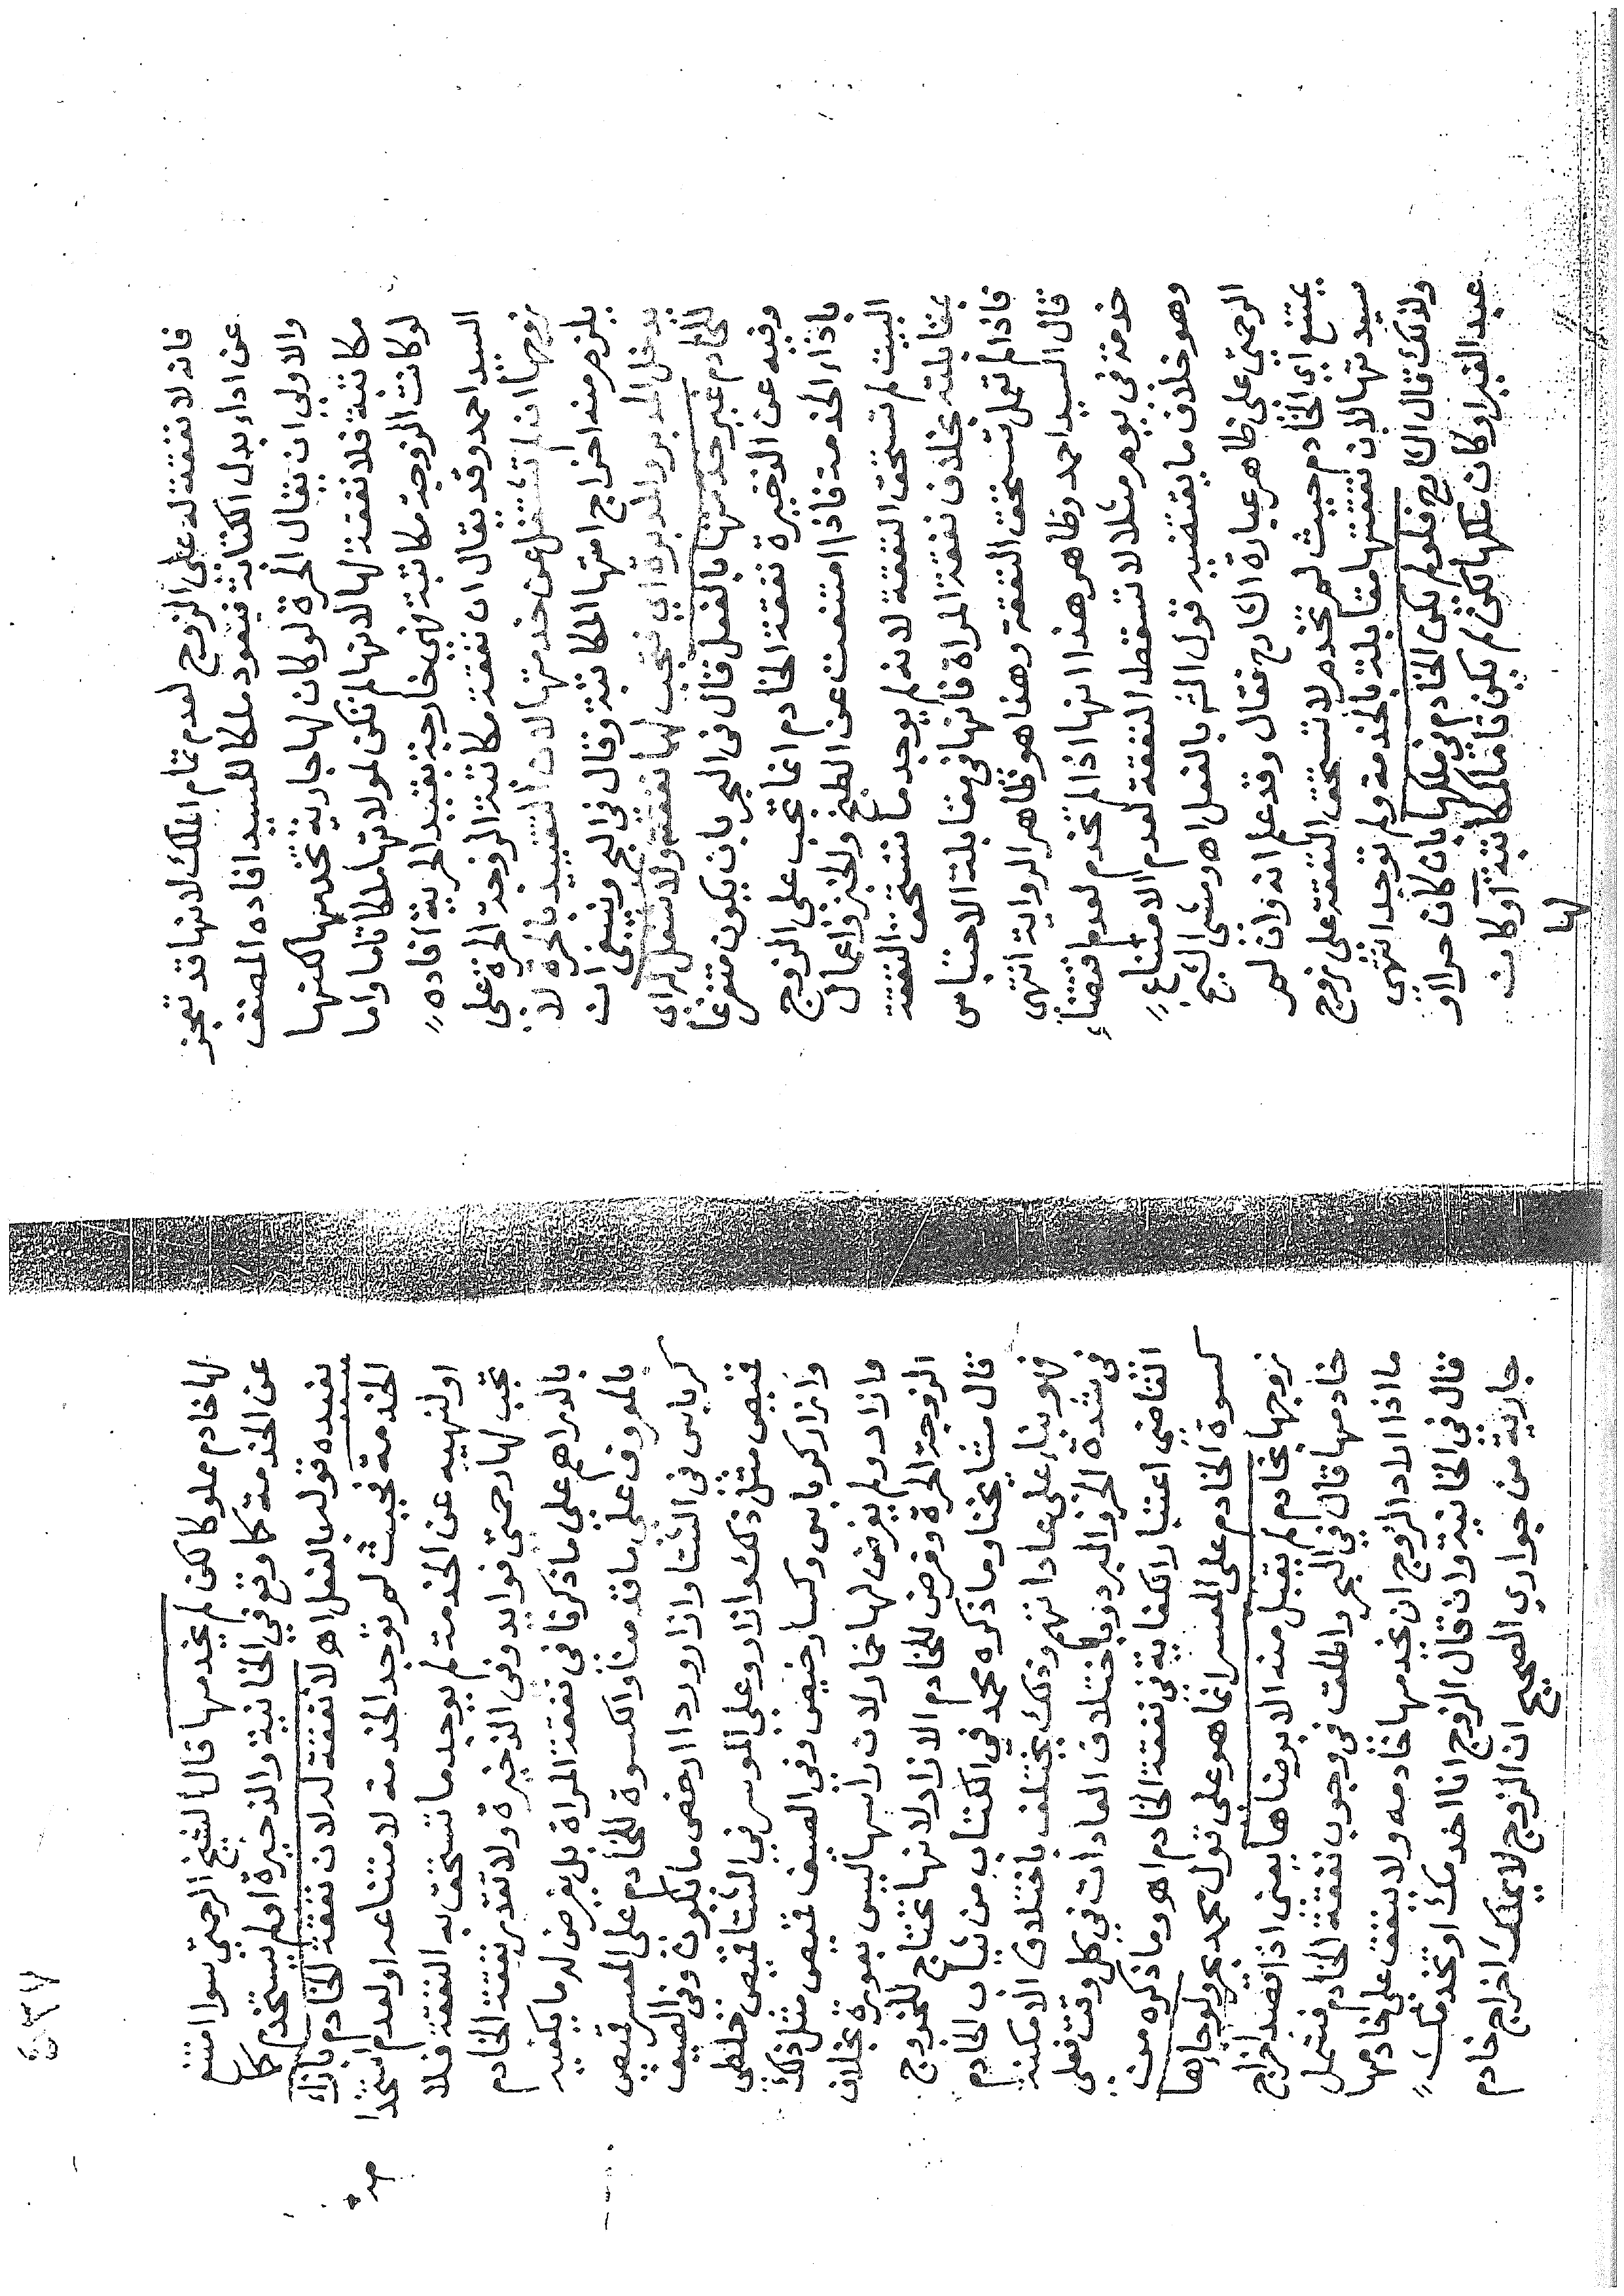 فانه لا نفقة له على الزوج لعدم تمام الملك لانها قد تعجز
عن اداء بدل الكتابة فيعود ملكا للسيد افاده المصنف
والاولى ان يقال الحرة لو كان لها جارية تخدمها لكنها
مكاتبة فلا نفقة لها لانها لم تكن لمولاتها ملكا تاما واما
لو كانت الزوجة مكاتبة فهى خارجة بقيد الحرية افاده
السيد احمد وقد يقال ان نفقة مكاتبة الزوجة الحرة على
زوجها ان لم تشتغل عن خدمتها لان التقييد بالحرة لا
يلزم منه اخراج امتها المكاتبة وقال فى البحر وينبغى ان
يدخل المدبر والمدبرة اى فتجب لهما نفقة ولا شغل له اى
للخادم غير خدمتها بالفعل قال فى البحر بان يكون متفرغا
وفيه عن الذخيرة نفقة الخادم انما تجب على الزوج
باذاء الخدمة فاذا امتنعت عن الطبخ والخبز واعمال
البيت لم تستحق النفقة لانه لم يوجد ما تستحق النفقة
بمقابلته بخلاف نفقة المراة فانها فى مقابلة الاحتباس
فاذا لم تعمل تستحق النفقة وهذا هو ظاهر الرواية انتهى
قال السيد احمد وظاهر هذا انها اذا لم تخدم لعدم اقتضاء
خدمة فى يوم مثلا لا تسقط النفقة لعدم الامتناع
وهو خلاف ما يقتضيه قول الش بالفعل اه ومشى الشيخ
الرحمتى على ظاهر عبارة الشارح فقال وقد علم انه وان لم
يمتنع اى الخادم حيث لم تخدم لا تستحق النفقة على زوج
سيدتها لان نفقتها مقابلة بالخدمة ولم توجد انتهى
ولذلك قال الشارح فلو لم يكن الخادم فى ملكها بان كان حرا او
عبد الغير او كان ملكها لكن لم يكن تاما كالمكاتبة او كان
لها
٥٣٧
لها خادم مملوكا لكن لم يخدمها قال الشيخ الرحمتي سوا امتنع
عن الخدمة كما وقع فى الخانية والذخيرة او لم يستخدم كما
يفيده قوله بالفعل اه لا نفقة له لان نفقة الخادم بازاء
الخدمة فحيث لم توجد الخدمة لامتناعه او لعدم استخدا
مه
او لنهيه عن الخدمة لم يوجد ما تستحق به النفقة فلا
تجب لها رحمتى فوايد وفى الذخيرة ولا تقدر نفقة الخادم
بالدراهم على ما ذكرنا فى نفقة المراة بل يفرض له ما يكفيه
بالمعروف على ما قدمنا والكسوة للخادم على المعسر قميص
كرباس فى الشتا وازار وردا ارخص ما يكون وفى الصيف
قميص مثل ذلك وازار وعلى الموسر فى الشتا قميص خلطى
وازار كرباس وكسا رخيص وفى الصيف قميص مثل ذلك
وازار ولم يفرض لها خمار لان راسها ليس بعورة بخلاف
الزوجة الحرة وفرض للخادم الازار لانها تحتاج للخروج
قال مشايخنا وما ذكره محمد فى الكتاب من ثياب الخادم
فهو بناء على عاداتهم وذلك يختلف باختلاف الامكنة
فى شدة الحر والبرد وباختلاف العادات فى كل وقت فعلى
القاضى اعتبار الكفاية فى نفقة الخادم اه وما ذكره من
كسوة الخادم على المعسر انما هو على قول محمد بحر ولو جاها
زوجها بخادم لم يقبل منه الا برضاها يعنى اذا قصد اخراج
خادمها قال فى البحر واطلق فى وجوب نفقة الخادم فشمل
ما اذا اراد الزوج ان يخدمها خادمه ولا ينفق على خادمها
قال فى الخانية وان قال الزوج انا اخدمك او تخدمك
جارية من جوارى الصحيح ان الزوج لا يملك اخراج خادم